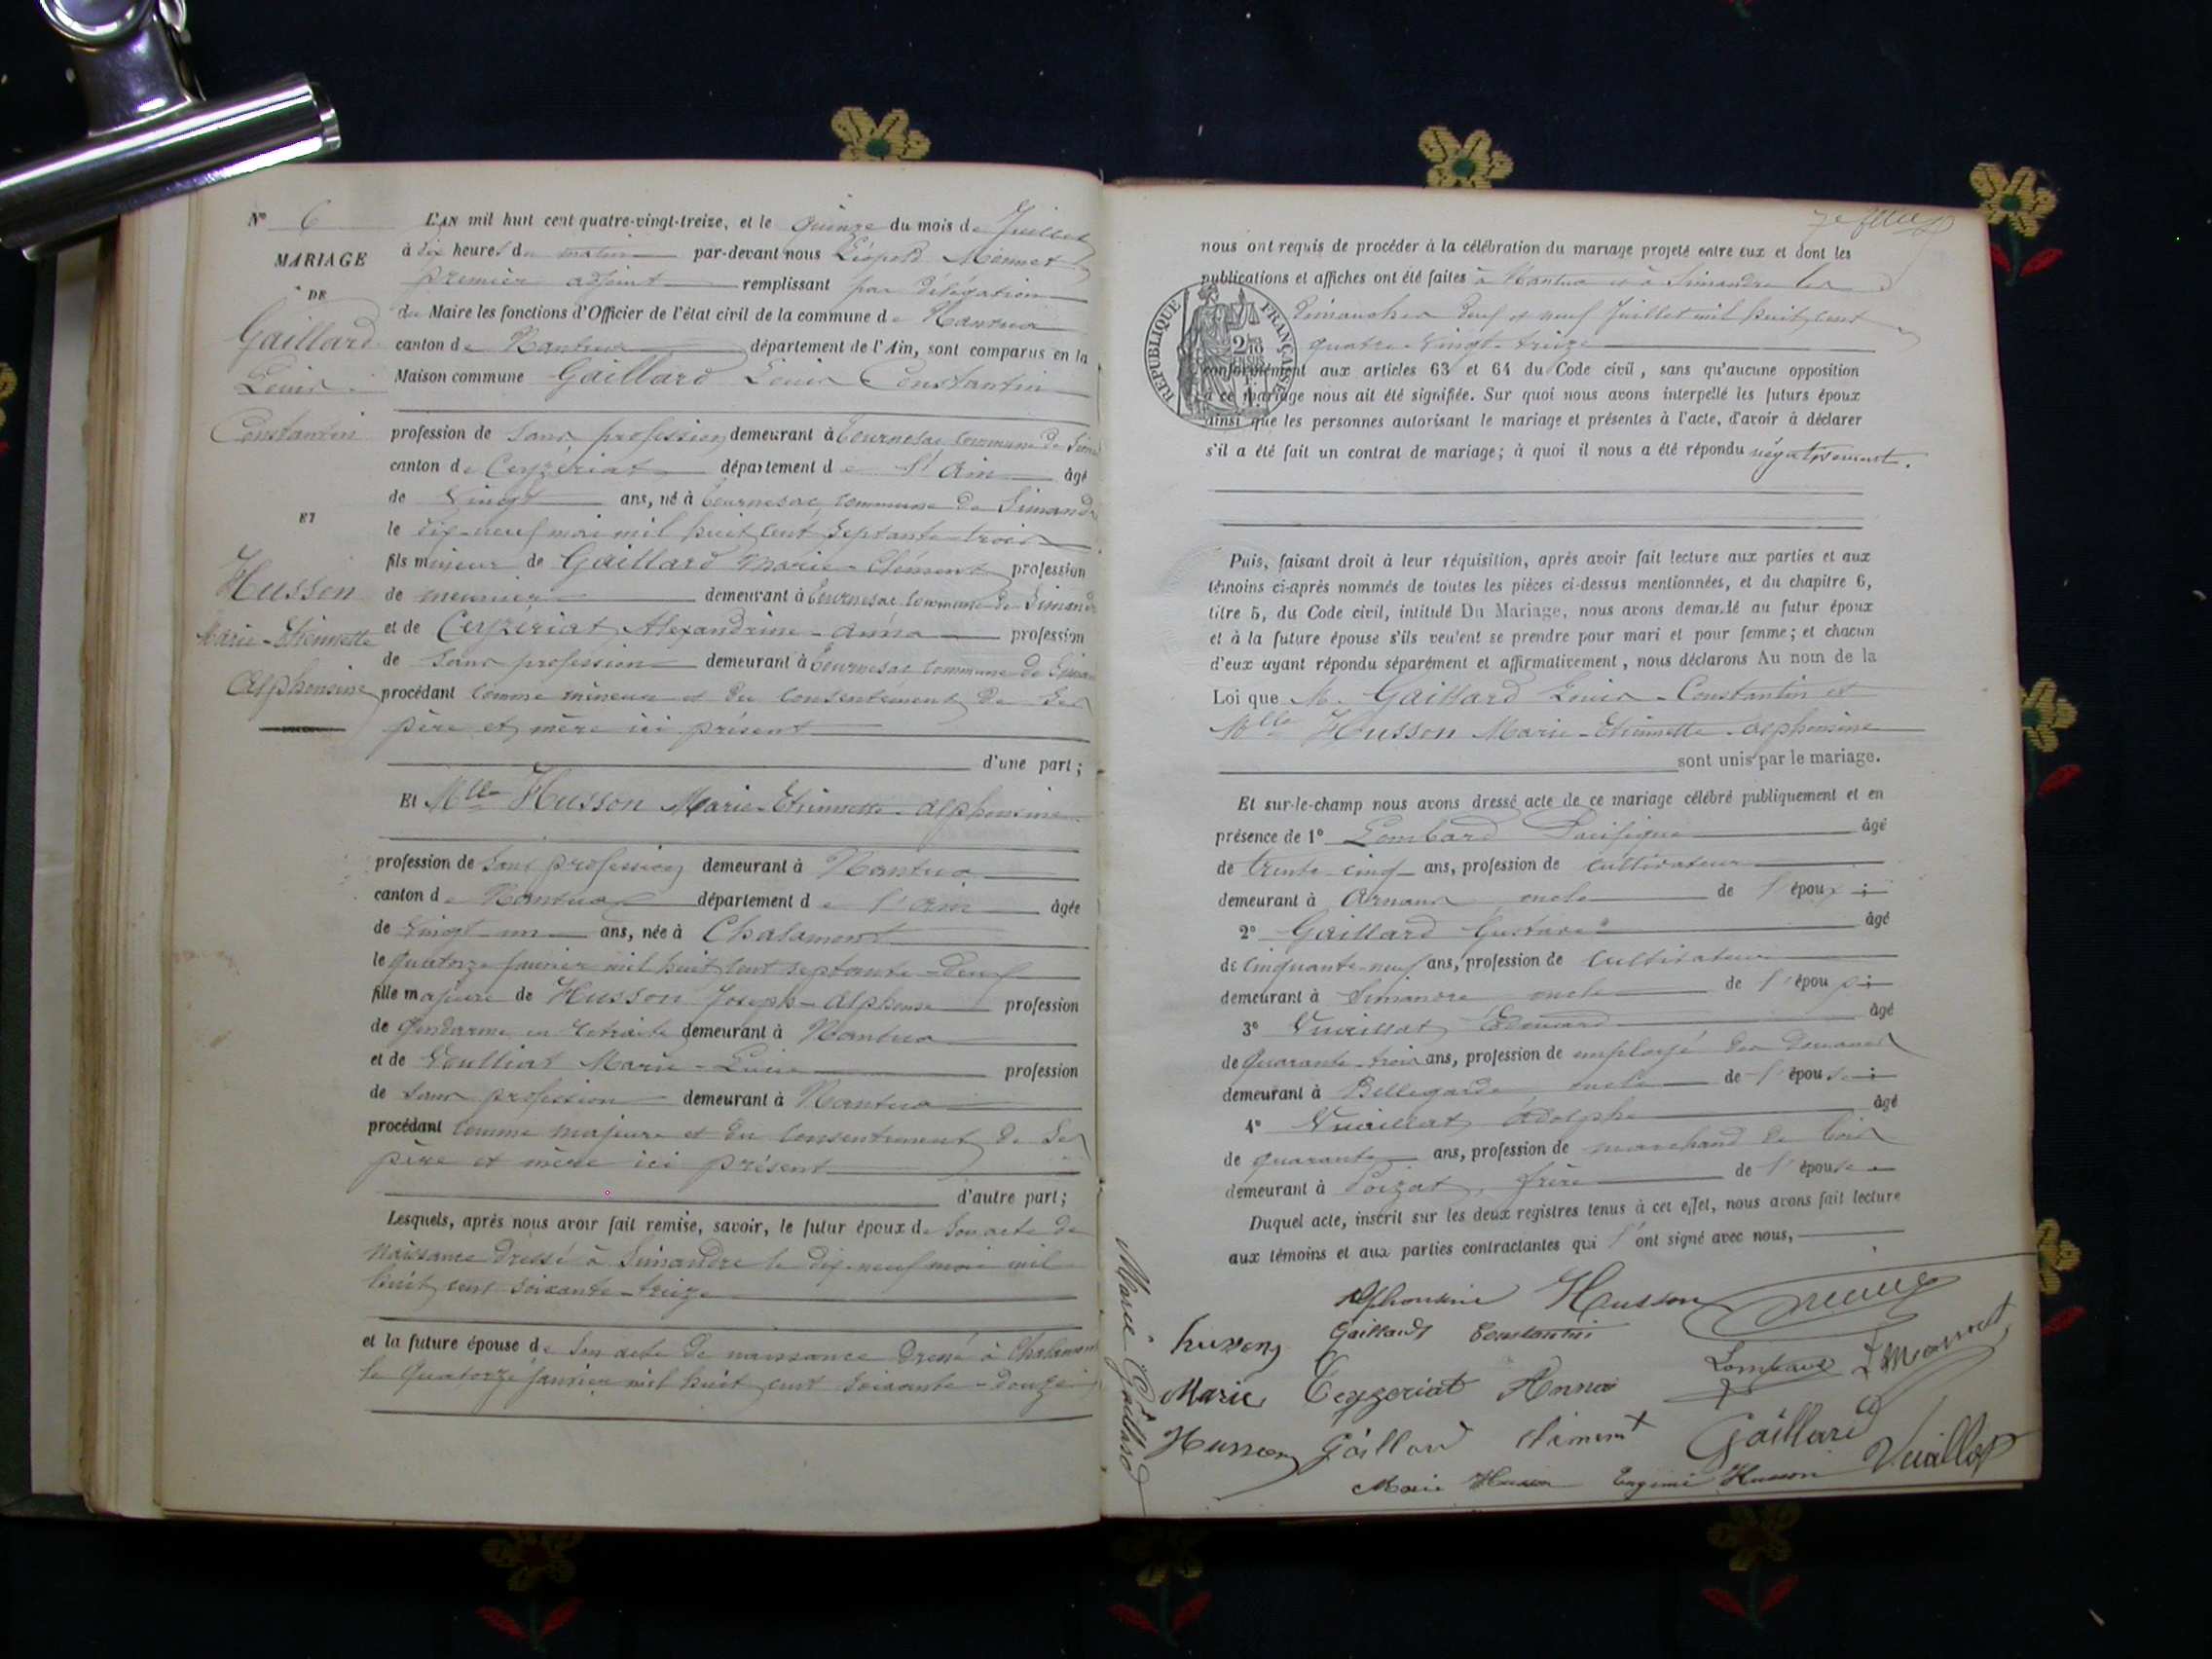 N° 6
MARIAGE
DE
Gaillard
Louis
Constantin
ET
Husson
Marie-Etiennette
Alphonsine
L'AN mil huit cent quatre-vingt-treize, et le quinze du mois de Juillet
à dix heures du matin par-devant nous Léopold Monnet
premier adjoint remplissant par délégation
du Maire les fonctions d'Officier de l'état civil de la commune de Nantua
canton de Nantua département de l'Ain, sont comparus en la
Maison commune Gaillard Louis Constantin
profession de sans profession demeurant à Tournesac commune de Sim
canton de Ceyzériat département de l'Ain âgé
de vingt ans, né à Tournesac commune de Simandre
le dix-neuf mai mil huit cent septante trois
fils mineur de Gaillard Marie-Clément profession
de meunier demeurant à Tournesac commune de Simandre
et de Ceyzériat Alexandrine-Anna profession
de sans profession demeurant à Tournesac commune de Siman
procédant comme mineur et du consentement de ses
père et mère ici présent
d'une part;
Et Mlle Husson Marie-Etiennette-Alphonsine
profession de sans profession demeurant à Nantua
canton de Nantua département de l'Ain âgée
de vingt un ans, née à Chalamont
le quatorze janvier mil huit cent septante-deux
fille majeure de Husson Joseph-Alphonse profession
de gendarme en retraite demeurant à Nantua
et de Marie-Lucie profession
de sans profession demeurant à Nantua
procédant comme majeure et du consentement de ses
père et mère ici présent
d'autre part;
Lesquels, après nous avoir fait remise, savoir, le futur époux de son acte de
naissance dressé à Simandre le dix-neuf mai mil
huit cent soixante-treize
et la future épouse de son acte de naissance dressé à Chalamont
le quatorze janvier mil huit cent soixante-douze
nous ont requis de procéder à la célébration du mariage projeté entre eux et dont les
publications et affiches ont été faites à Nantua et à Simandre les
dimanches deux et neuf Juillet mil huit cent
quatre-vingt-treize
RÉPUBLIQUE FRANÇAISE
conformément aux articles 63 et 64 du Code civil, sans qu'aucune opposition
à ce mariage nous ait été signifiée. Sur quoi nous avons interpellé les futurs époux
ainsi que les personnes autorisant le mariage et présentes à l'acte, d'avoir à déclarer
s'il a été fait un contrat de mariage; à quoi il nous a été répondu négativement.
Puis, faisant droit à leur réquisition, après avoir fait lecture aux parties et aux
témoins ci-après nommés de toutes les pièces ci-dessus mentionnées, et du chapitre 6,
titre 5, du Code civil, intitulé Du Mariage, nous avons demandé au futur époux
et à la future épouse s'ils veulent se prendre pour mari et pour femme; et chacun
d'eux ayant répondu séparément et affirmativement, nous déclarons Au nom de la
Loi que M. Gaillard Louis-Constantin et
Mlle Husson Marie-Etiennette-Alphonsine
sont unis par le mariage.
Et sur-le-champ nous avons dressé acte de ce mariage célébré publiquement et en
présence de 1° Lombard Pacifique âgé
de trente-cinq ans, profession de cultivateur
demeurant à Arnans oncle de l'époux;
2° Gaillard Gustave âgé
de cinquante-neuf ans, profession de cultivateur
demeurant à Simandre oncle de l'époux;
3° Vuaillat Edouard âgé
de quarante-trois ans, profession de employé des douanes
demeurant à Bellegarde oncle de l'épouse;
4° Vuaillat Adolphe âgé
de quarante ans, profession de marchand de bois
demeurant à Poizat, frère de l'épouse
Duquel acte, inscrit sur les deux registres tenus à cet effet, nous avons fait lecture
aux témoins et aux parties contractantes qui l'ont signé avec nous,
Alphonsine Husson
husson Gaillard Constantin
Lombard L Monnet
Marie Ceyzeriat Anna
Husson Gaillard Climent Gaillard Vuaillat
Marie Husson Eugénie Husson
Marie Gaillard